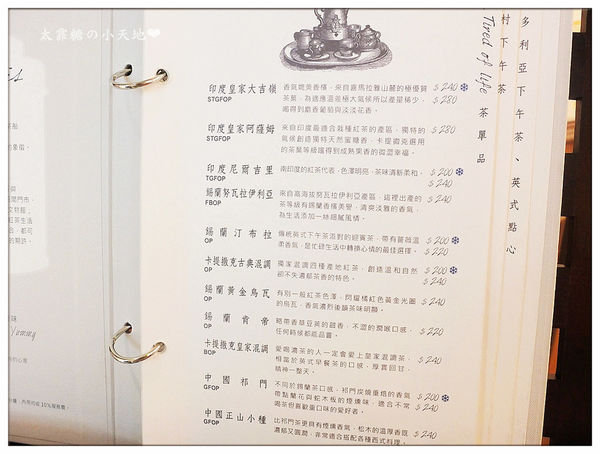 太靠糖の小天地❤
多利亞下午茶、英式點心
村下午茶
Tired of life 茶單品
印度皇家大吉嶺
STGFOP
香氣媲美香檳，來自喜馬拉雅山麓的極優質
茶葉，為適應溫差極大氣候所以產量稀少，
喝得到麝香葡萄與淡淡花香。
$ 240 ❄
$ 280
印度皇家阿薩姆
STGFOP
來自印度最適合栽種紅茶的產區，獨特的
氣候創造獨特天然蜜糖香，卡提撒克選用
的茶葉等級躍得到成熟果香的微澀幸福。
$ 280
印度尼爾吉里
TGFOP
南印度的紅茶代表，色澤明亮，茶味清新柔和。
$ 200 ❄
$ 240
錫蘭努瓦拉伊利亞
FBOP
來自高海拔努瓦拉伊利亞產區，這裡出產的
茶等級有錫蘭香檳美譽，清爽淡雅的香氣，
為生活添加一絲細膩風情。
$ 240
錫蘭汀布拉
OP
傳統英式下午茶派對的迎賓茶，帶有薔薇溫
柔香氣，是忙碌生活中轉換心情的最佳選擇。
$ 200 ❄
$ 220
卡提撒克古典混調
OP
獨家混調四種產地紅茶，創造溫和自然
卻不失濃郁茶香的特色。
$ 200 ❄
$ 240
錫蘭黃金烏瓦
OP
有別一般紅茶色澤，閃耀橘紅色黃金光圈
的烏瓦，香氣濃烈後韻茶味明顯。
$ 240
錫蘭肯帝
OP
略帶香草豆莢的甜香，不澀的潤喉口感，
任何時候都能品嘗。
$ 220
卡提撒克皇家混調
BOP
愛喝濃茶的人一定會愛上皇家混調茶，
相當於英式早餐茶的口感，厚實回甘，
精神一整天。
$ 240
中國祁門
GFOP
不同於錫蘭茶口感，祁門炭燒重焙的香氣
帶點蘭花與蛇木板的煙燻味，適合不常
喝茶但喜歡重口味的愛好者。
$ 200 ❄
$ 240
中國正山小種
GFOP
比祁門茶更具有煙燻香氣，松木的溫厚香氛
濃郁又圓潤，非常適合搭配各種西式料理。
$ 240
Yummy